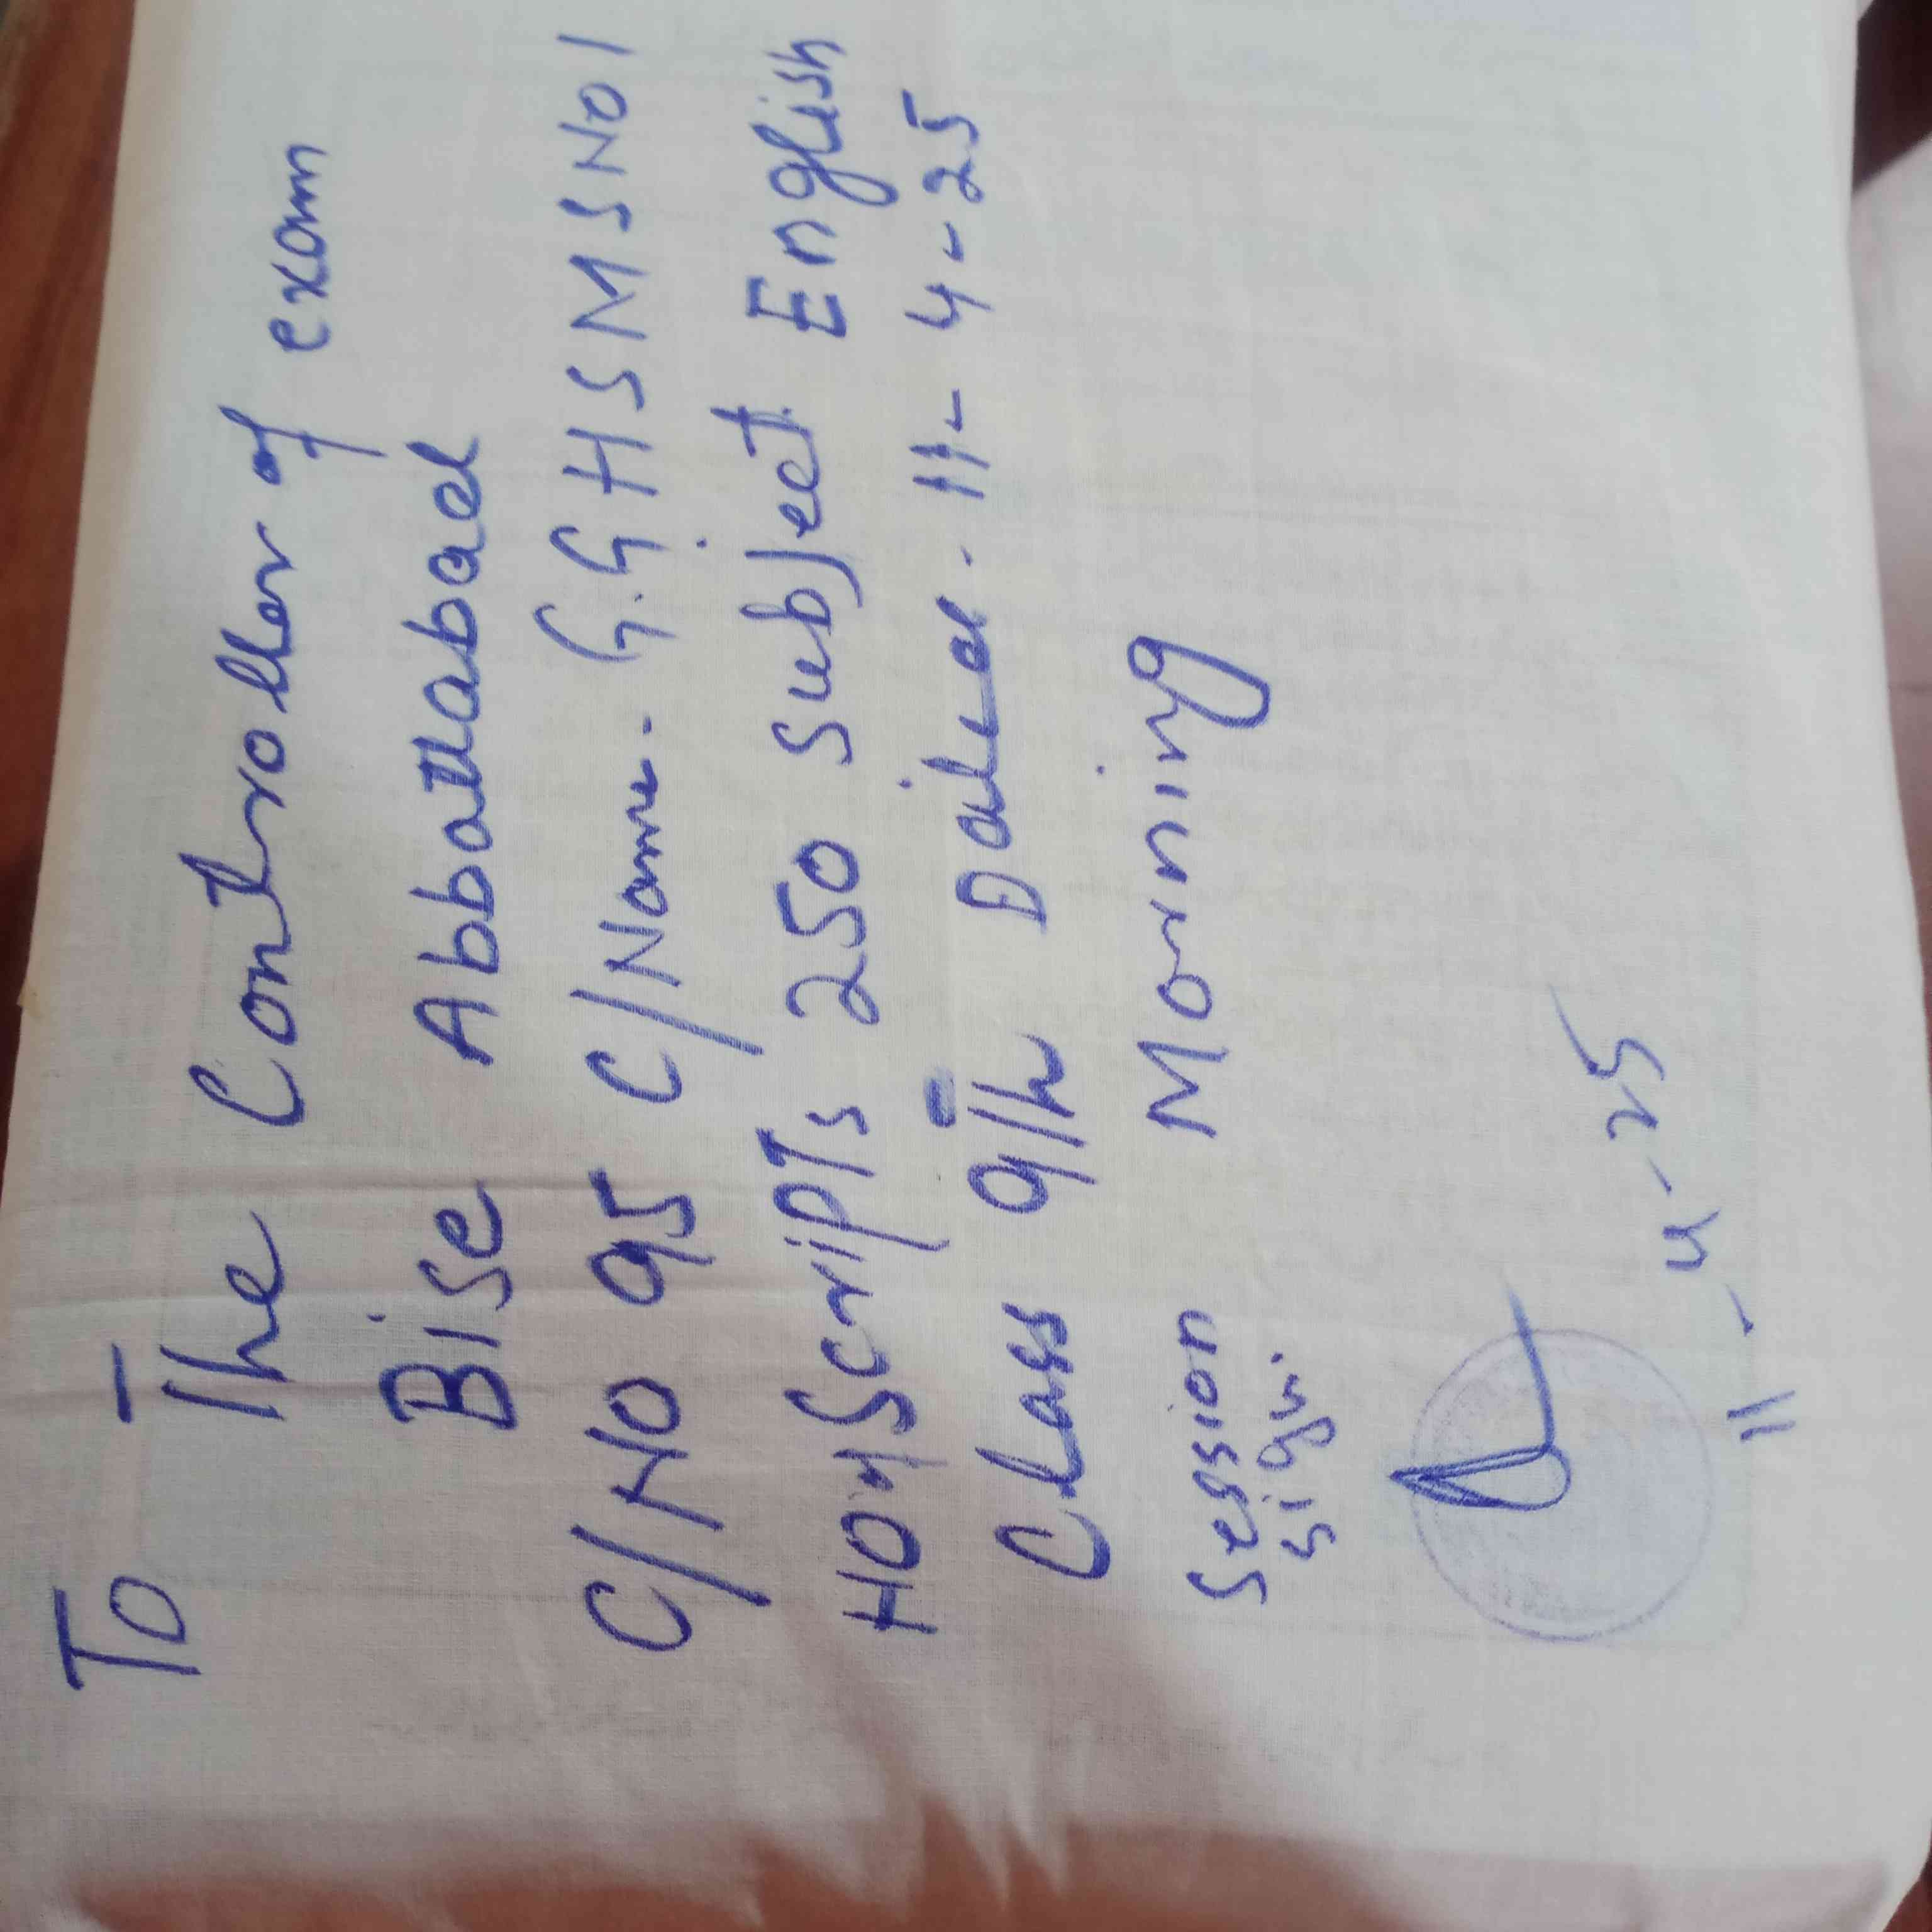 To
The Controller of exam
Bise Abbattabad
C/No 95 C/Name. G.GHSMSNO1
No of Scripts 250 Subject English
Class 9th Dated. 11-4-25
Session Morning
Sign.
11-4-25